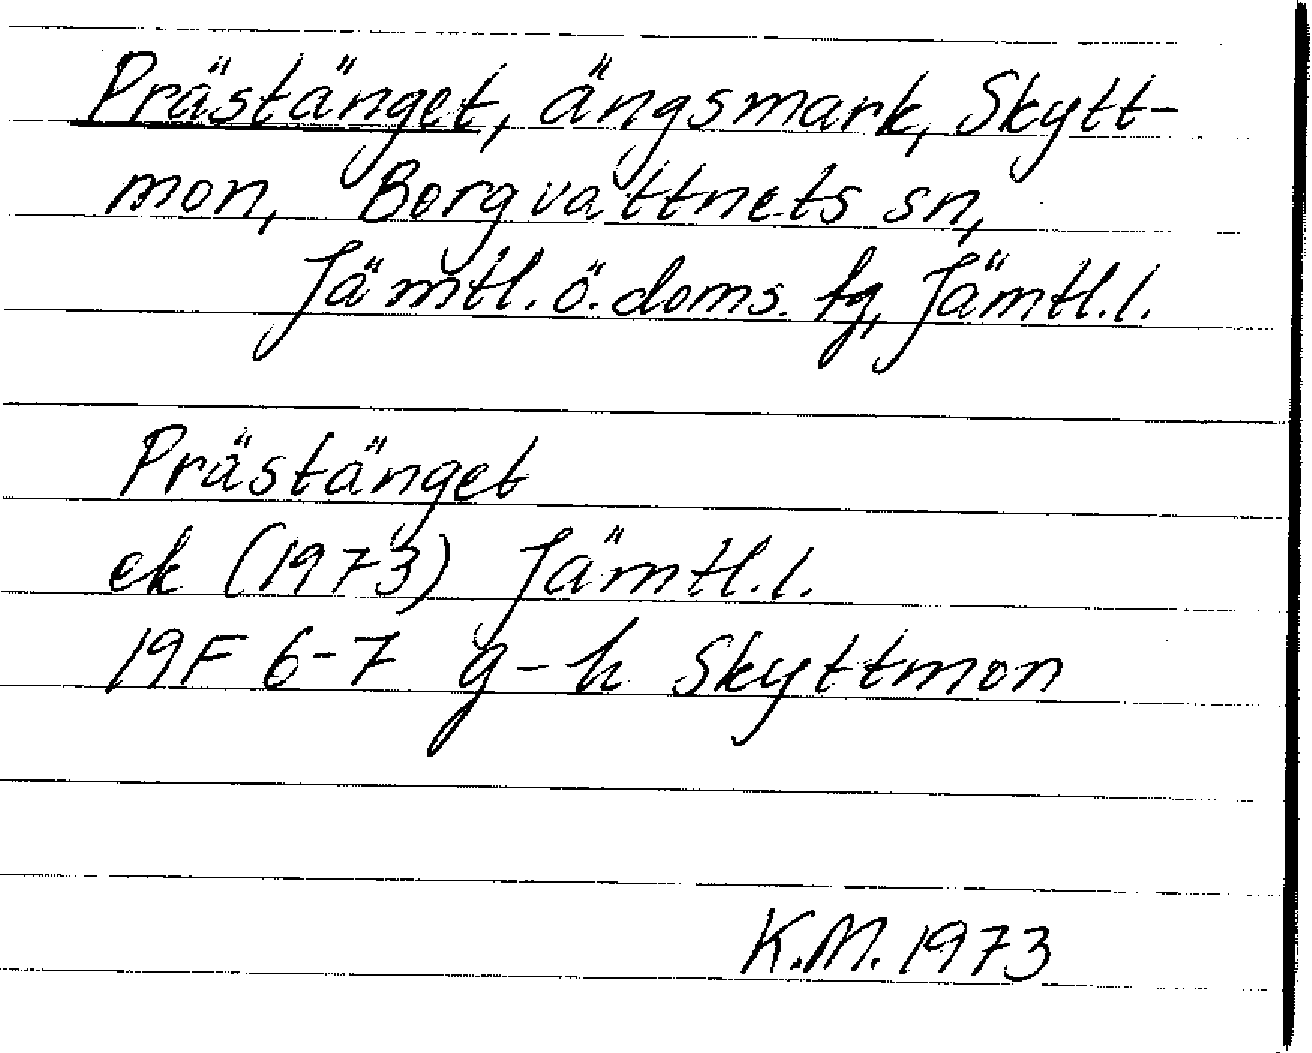 Prästänget, ängsmark, Skytt-
mon, Borgvattnets sn,
Jämtl. ö. doms. tg, Jämtl. l.
Prästänget
ek (1973) Jämtl. l.
19F 6-7 g-h Skyttmon
K.M. 1973